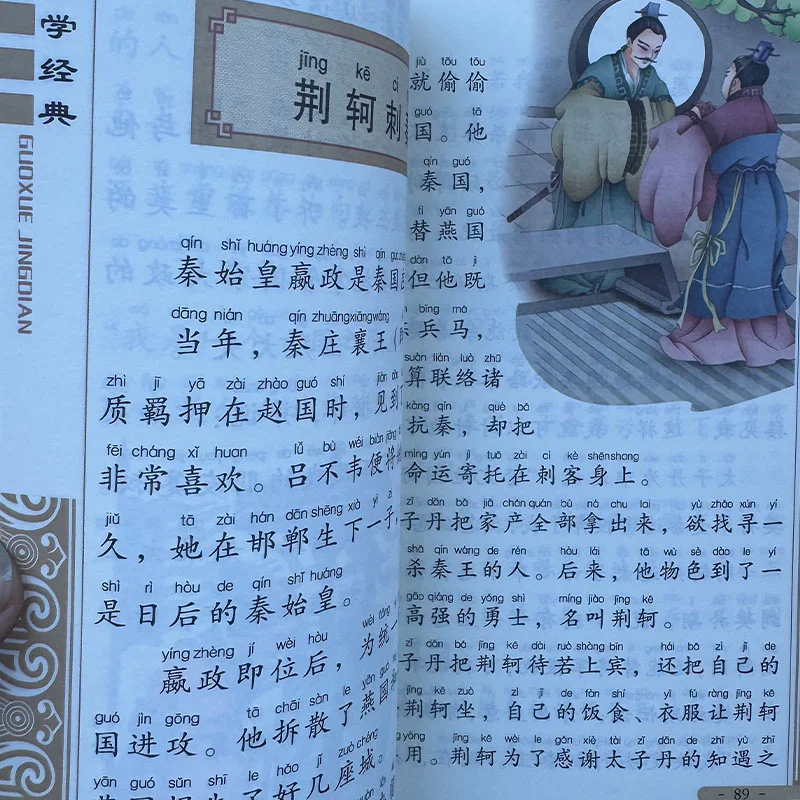 学经典
GUOXUE JINGDIAN
jīng kē cì
荆轲刺
qín shǐ huáng yíng zhèng shì qín guó
秦始皇嬴政是秦国
dāng nián qín zhuāng xiāng wáng
当年，秦庄襄王（
zhì jī yā zài zhào guó shí jiàn dào
质羁押在赵国时，见到
fēi cháng xǐ huan lǚ bù wéi biàn jiāng
非常喜欢。吕不韦便将
jiǔ tā zài hán dān shēng xià yì zǐ
久，她在邯郸生下一子，
shì rì hòu de qín shǐ huáng
是日后的秦始皇。
yíng zhèng jí wèi hòu wèi tǒng
嬴政即位后，为统一
guó jìn gōng tā chāi sàn le yān guó
国进攻。他拆散了燕国
yān guó sǔn shī le hǎo jǐ zuò chéng
了好几座城。
jiù tōu tōu
就偷偷
guó tā
国。他
qín guó
秦国，
tì yān guó
替燕国
dàn tā jì
但他既
bīng mǎ
兵马，
suàn lián luò zhū
算联络诸
kàng qín què bǎ
抗秦，却把
mìng yùn jì tuō zài cì kè shēn shang
命运寄托在刺客身上。
zǐ dān bǎ jiā chǎn quán bù ná chu lai yù zhǎo xún yí
子丹把家产全部拿出来，欲找寻一
shā qín wáng de rén hòu lái tā wù sè dào le yí
杀秦王的人。后来，他物色到了一
gāo qiáng de yǒng shì míng jiào jīng kē
高强的勇士，名叫荆轲。
zǐ dān bǎ jīng kē dài ruò shàng bīn hái bǎ zì jǐ de
子丹把荆轲待若上宾，还把自己的
jīng kē zuò zì jǐ de fàn shí yī fú ràng jīng kē
荆轲坐，自己的饭食、衣服让荆轲
yòng jīng kē wèi le gǎn xiè tài zǐ dān de zhī yù zhī
用。荆轲为了感谢太子丹的知遇之
- 89 -